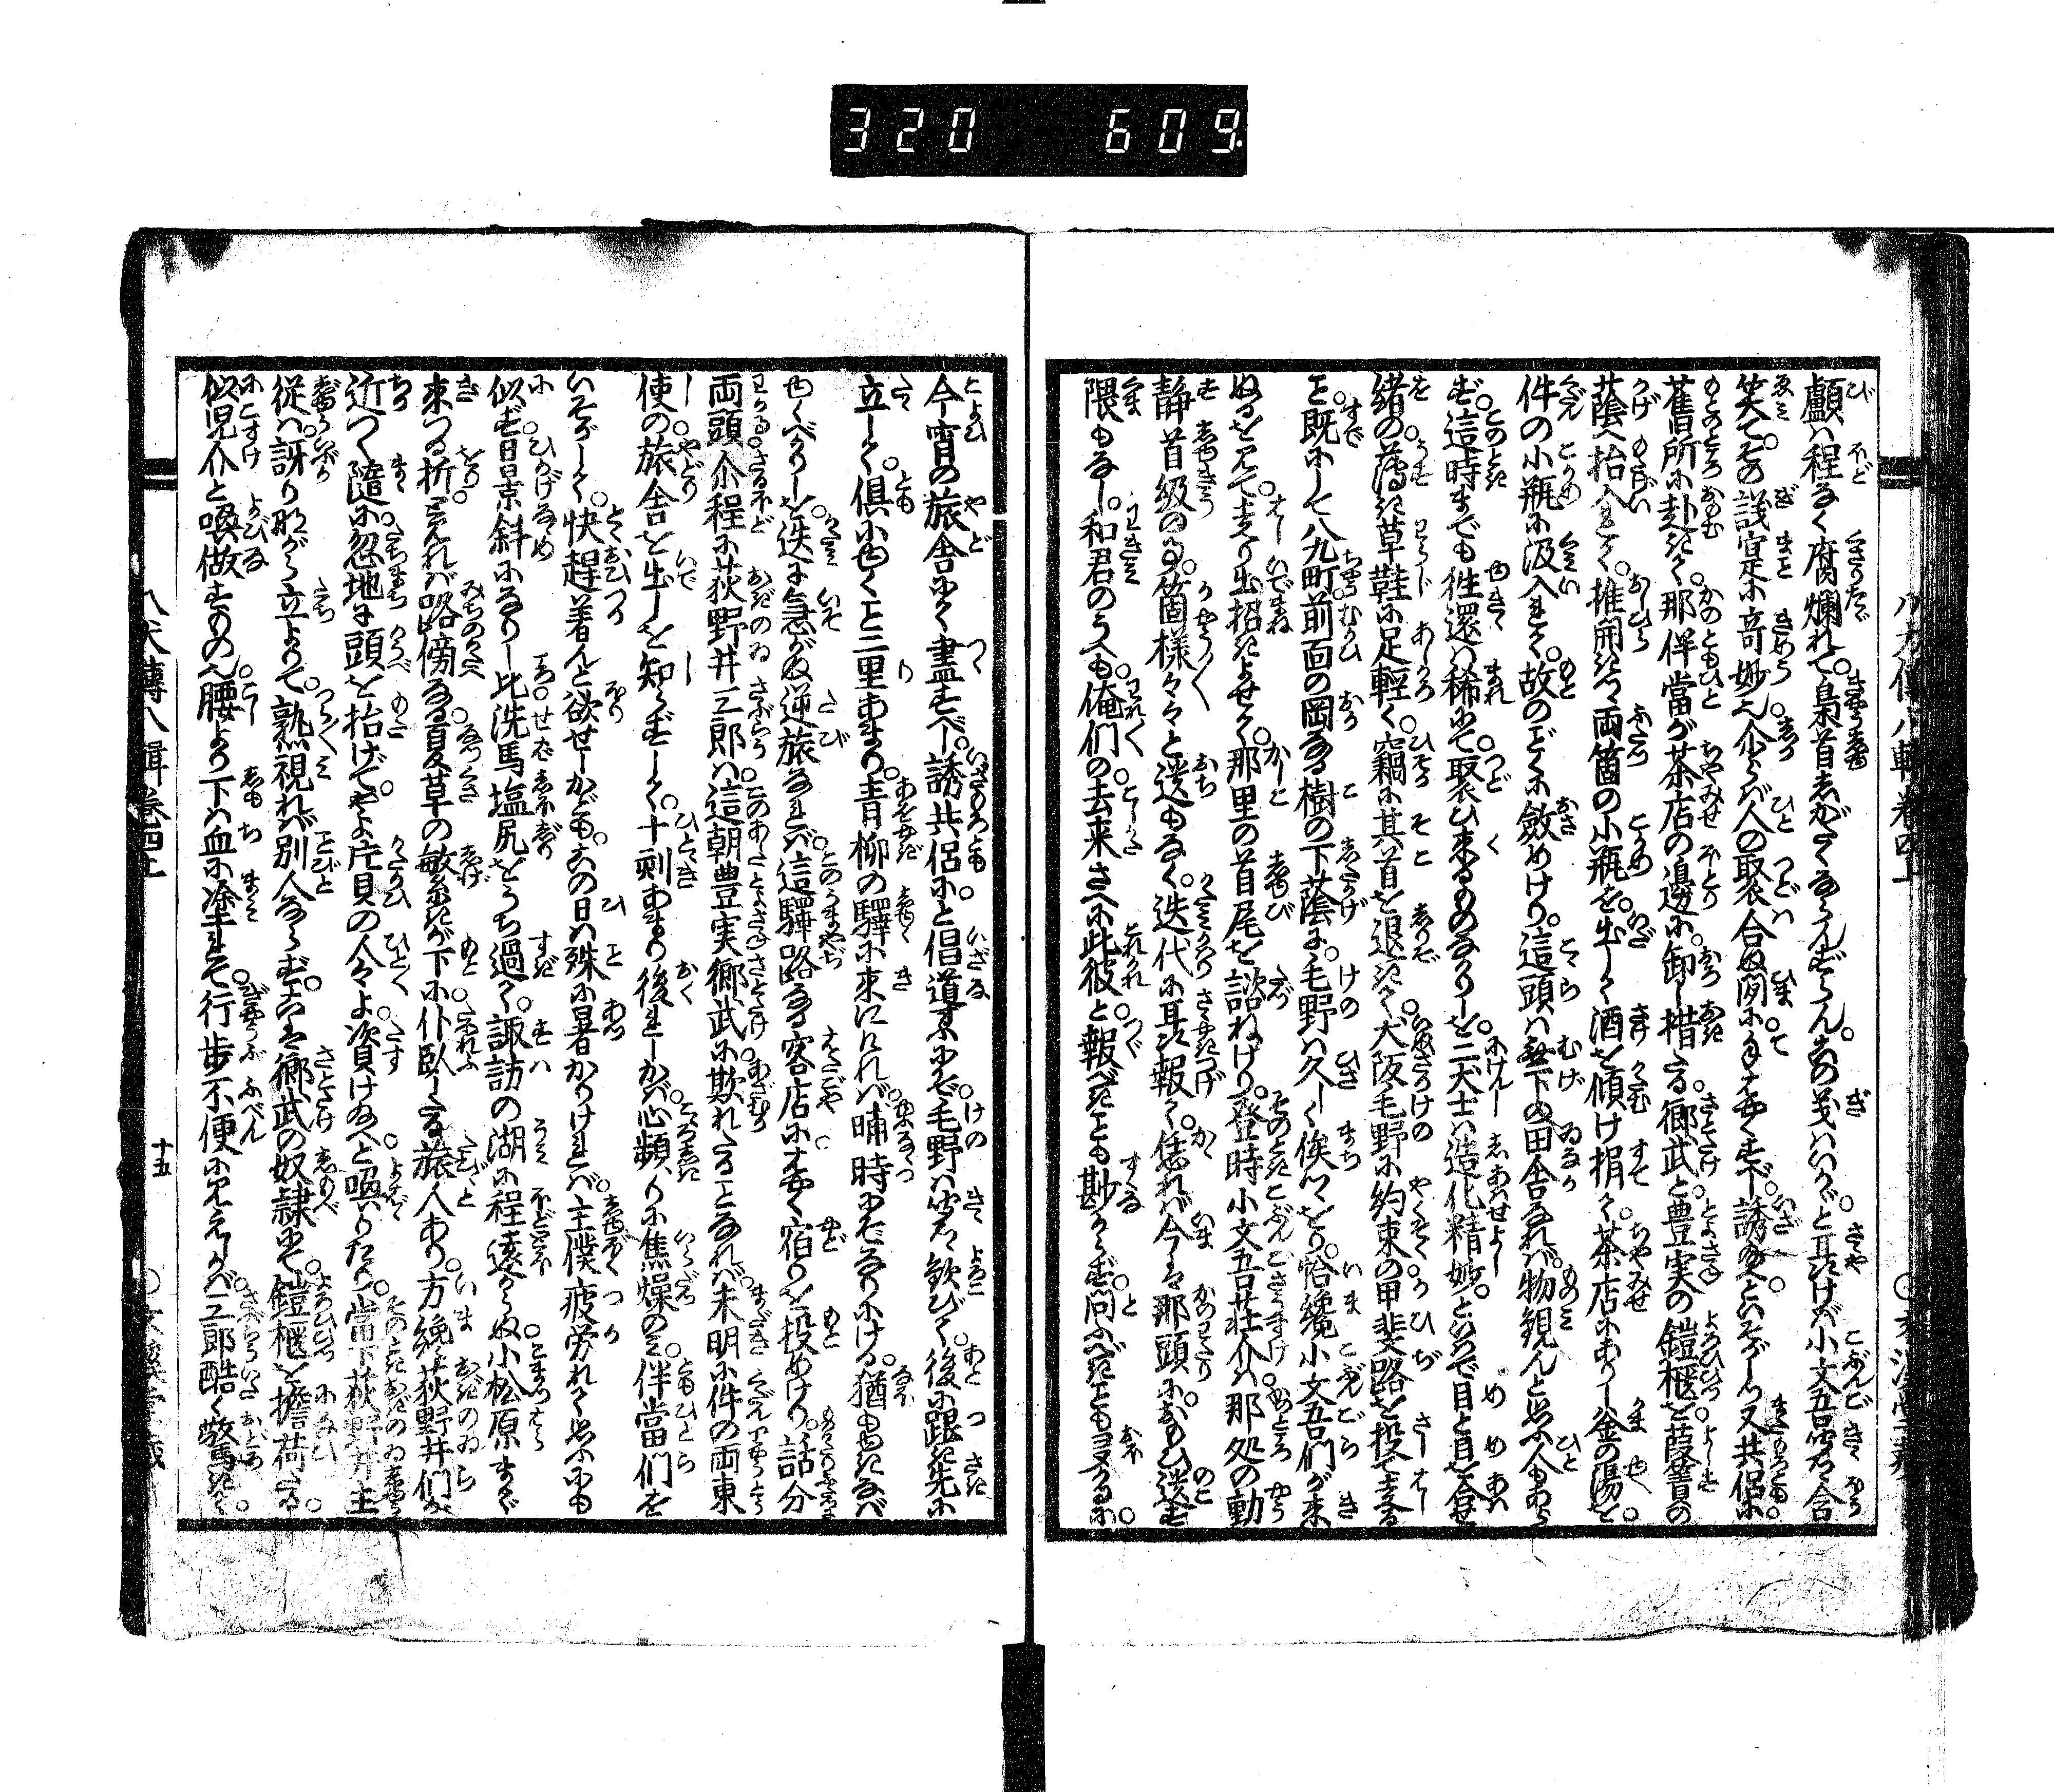 320 609
顱は程なく腐爛れて。梟首しがたくなるべからん。この義はいかゞと耳語けば小文吾寔含
笑て。その議寔に奇妙也。介らば人の聚合ぬ間に。手をはやくせずや。誘給へといそがしつ又共侶に
舊所に赴きて。那伴當が茶店の邊に。卸し措たる郷武と豊実の鎧櫃を葭簀の
蔭へ抬入れて。推開きつゝ両箇の小瓶を。出して酒を傾け捐て。茶店にありし釜の湯を
件の小瓶に汲入れて。故のごとくに斂めけり。這頭は無下の田舎なれば。物観んと思ふ人もあら
ず。這時までも徃還は稀にて。聚ひ来るものなかりしを。二犬士は造化精妙。といひて目と目を合せ
緒の薄き草鞋に足軽く。竊に其首を退きて。犬阪毛野に約束の甲斐路を投て走る
こと。既にして八九町。前面の岡なる樹の下蔭に。毛野は久しく俟つゝをり。恰纔小文吾們が来
ぬるを見て。走り出招きよせて。那里の首尾を諮ねけり。登時小文吾荘介は。那処の動
静首級の事。箇様々々と送もなく。迭代に耳語報て。恁れば今は那頭に。おもひ遺す
隈もなし。和君のうへも俺們の。去来さへに此彼と。報べきことも尠からず。問ふべきことも又多かるに。
今宵の旅舎にて盡すべし。誘共侶にと倡道すにぞ。毛野は皆々歓びて。後に跟き先に
立して。倶にゆくこと二里あまり。青柳の驛に来にければ。晡時にぞなりにける。猶もゆきなば
ゆくべかりしを。迭に急がぬ逆旅なれば。這驛路なる客店に。はやく宿りを投めけり。話分
両頭。介程に荻野井三郎は。這朝豊実郷武に。欺れたることなれば。未明に件の両東
使の。旅舎を出しを知らずして。十刻あまり後れしかば。心頻りに焦燥のみ。伴當們を
いそがして。快趕着んと欲せしかども。この日は殊に暑かりければ。主僕疲労れて思ふにも
似ず。日景斜になりし比。洗馬塩尻をうち過て。諏訪の湖に程遠からぬ。小松原まで
来つる折。見れば路傍なる。夏草の繁きが下に。仆臥したる旅人あり。方纔荻野井們が
近つく隨に。忽地に頭を抬げて。やよ広貝の人々よ。資け給へと喚りたり。當下荻野井主
従は。訝りながら立よりて。熟視れば別人ならず。こは是郷武の奴隷にて。鎧櫃を擔荷たる。
似児介と喚做すもの也。腰より下は血に塗れて。行歩不便に見えしかば。三郎酷く驚きて。
八犬傳八輯卷四上
十五